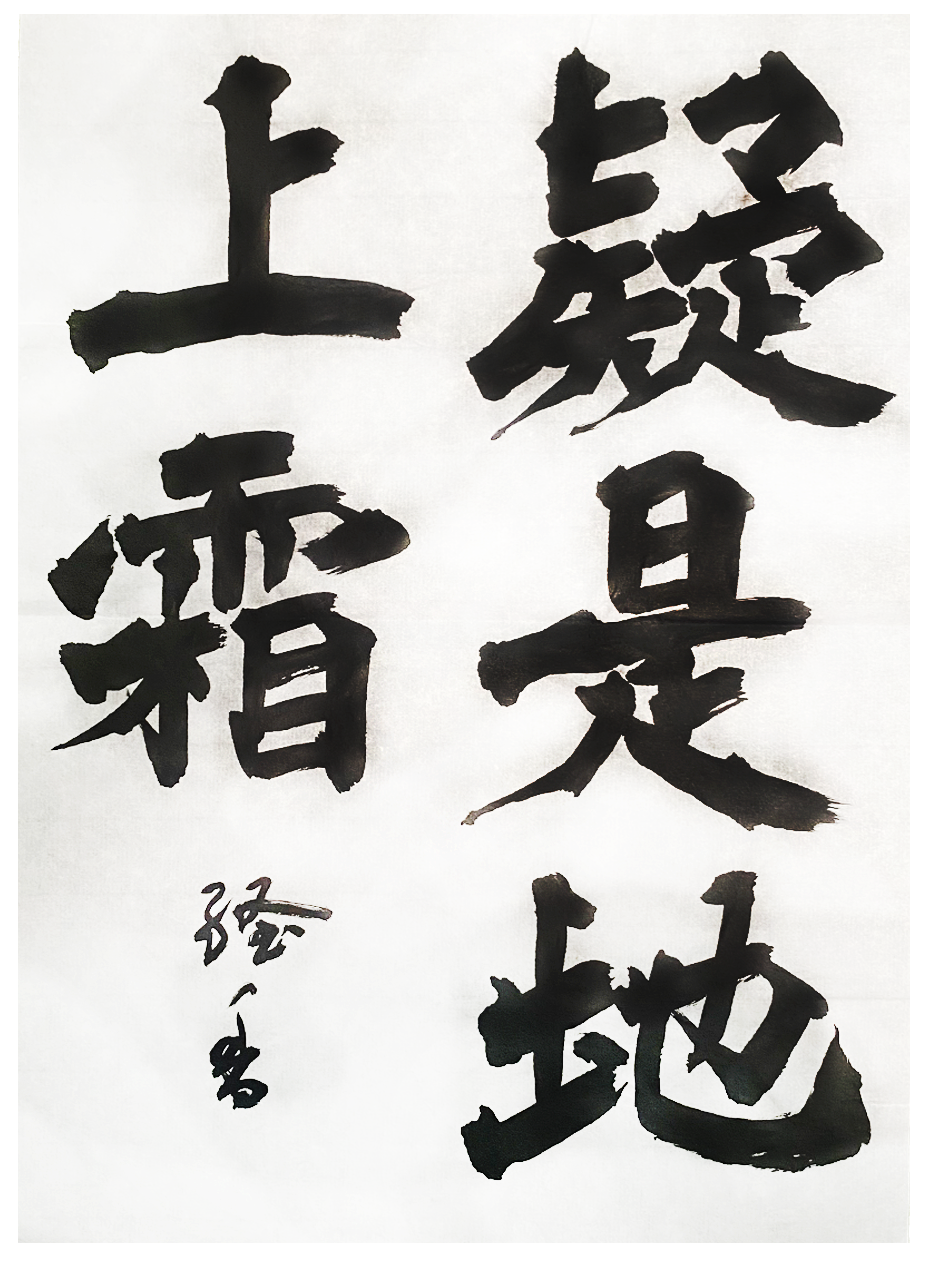 疑是地
上霜